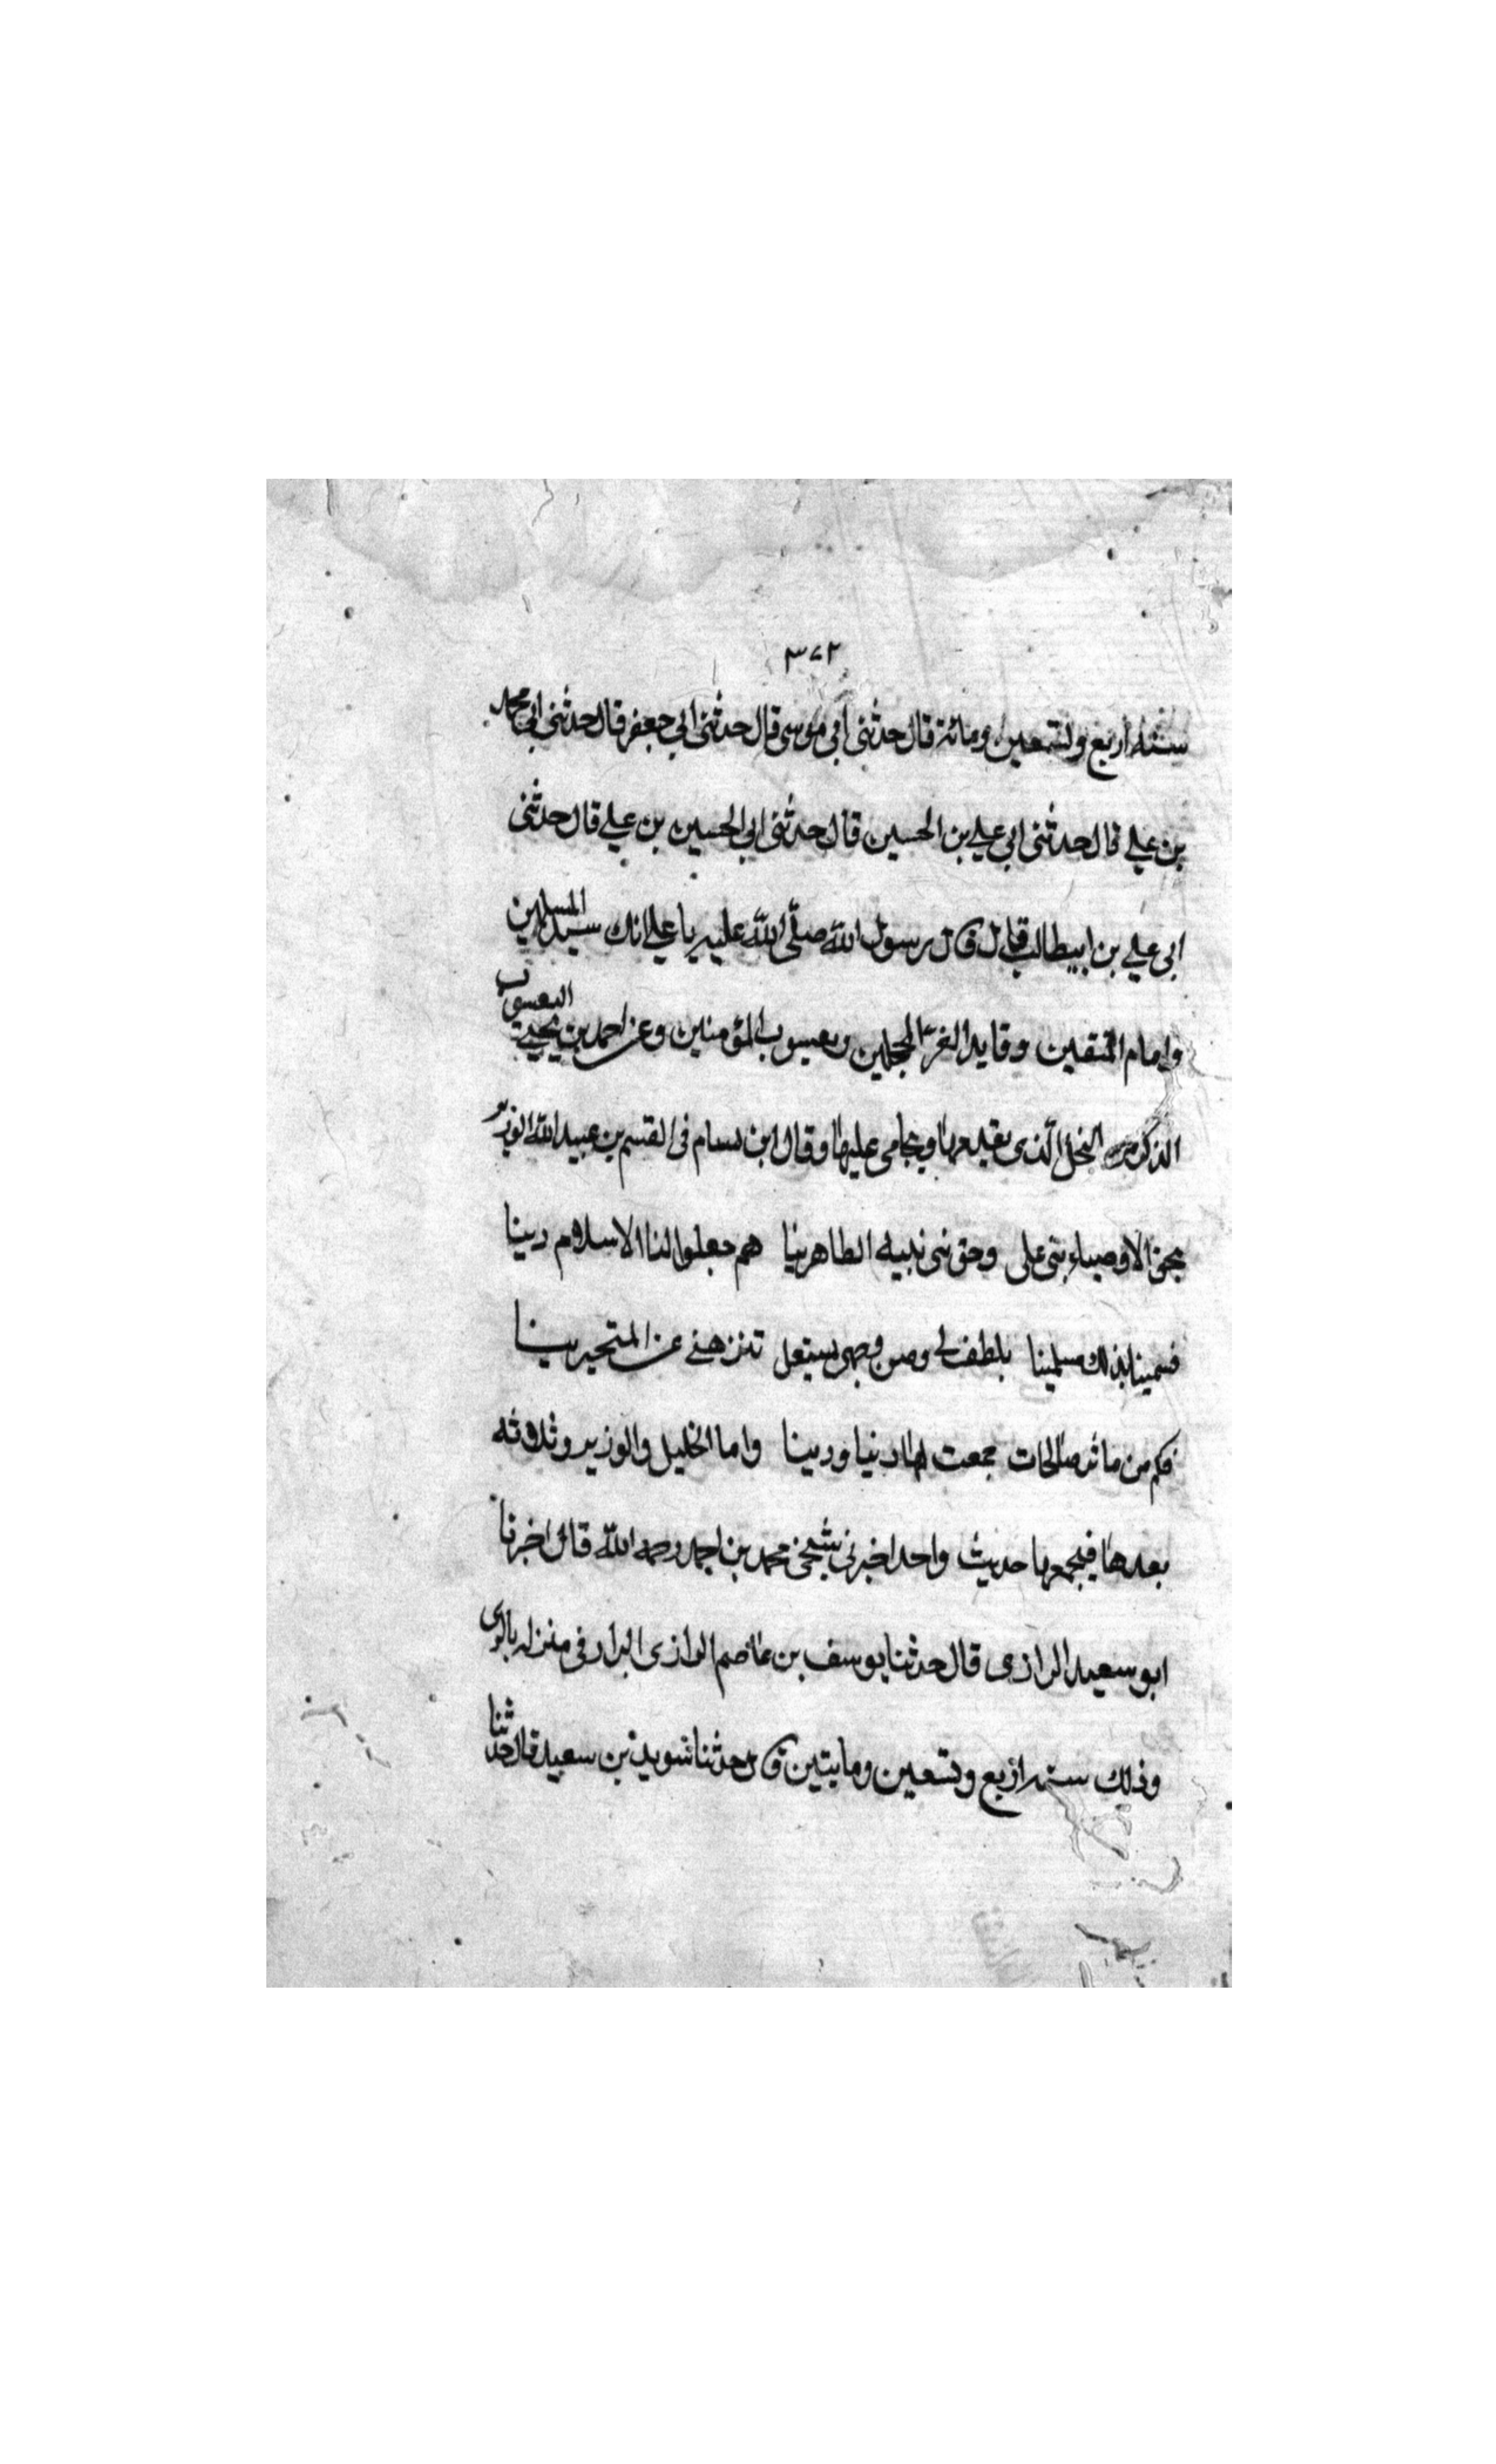 ٣٧٢
سنة اربع وتسعين ومائة قال حدثنى ابي موسى قال حدثنى ابي جعفر قال حدثنى ابي محمد
بن علي قال حدثنى ابي علي بن الحسين قال حدثنى ابي الحسين بن علي قال حدثنى
ابي علي بن ابيطالب قال قال رسول الله صلّى الله عليه يا علي انك سيد المسلمين
وامام المتقين وقايد الغرّ المحجلين ويعسوب المؤمنين وعن احمد بن يحيى اليعسوب
الذكر من النحل الّذى يقيدمها ويحامى عليها وقال ابن بسام فى القسم بن عبيد الله الوزير
بحق الاوصياء بنى على وحق بنى نبيه الطاهرينا هم جعلوا لنا الاسلام دينا
فسمينا بذلك مسلمينا بلطف لى وصن وجهى بستعل تنزهنى عن المتحيرينا
فكم من ماثر صالحات جمعت لها دنيا ودينا واما الخليل والوزير وثلاثه
بعدها فيجمعها حديث واحد اخبرنى شيخى محمد بن احمد رحمه الله قال اخبرنا
ابو سعيد الرازى قال حدثنا يوسف بن عاصم الرازى البزار فى منزله بالرى
وذلك سنة اربع وتسعين ومايتين قال حدثنا سويد بن سعيد قال حدثنا